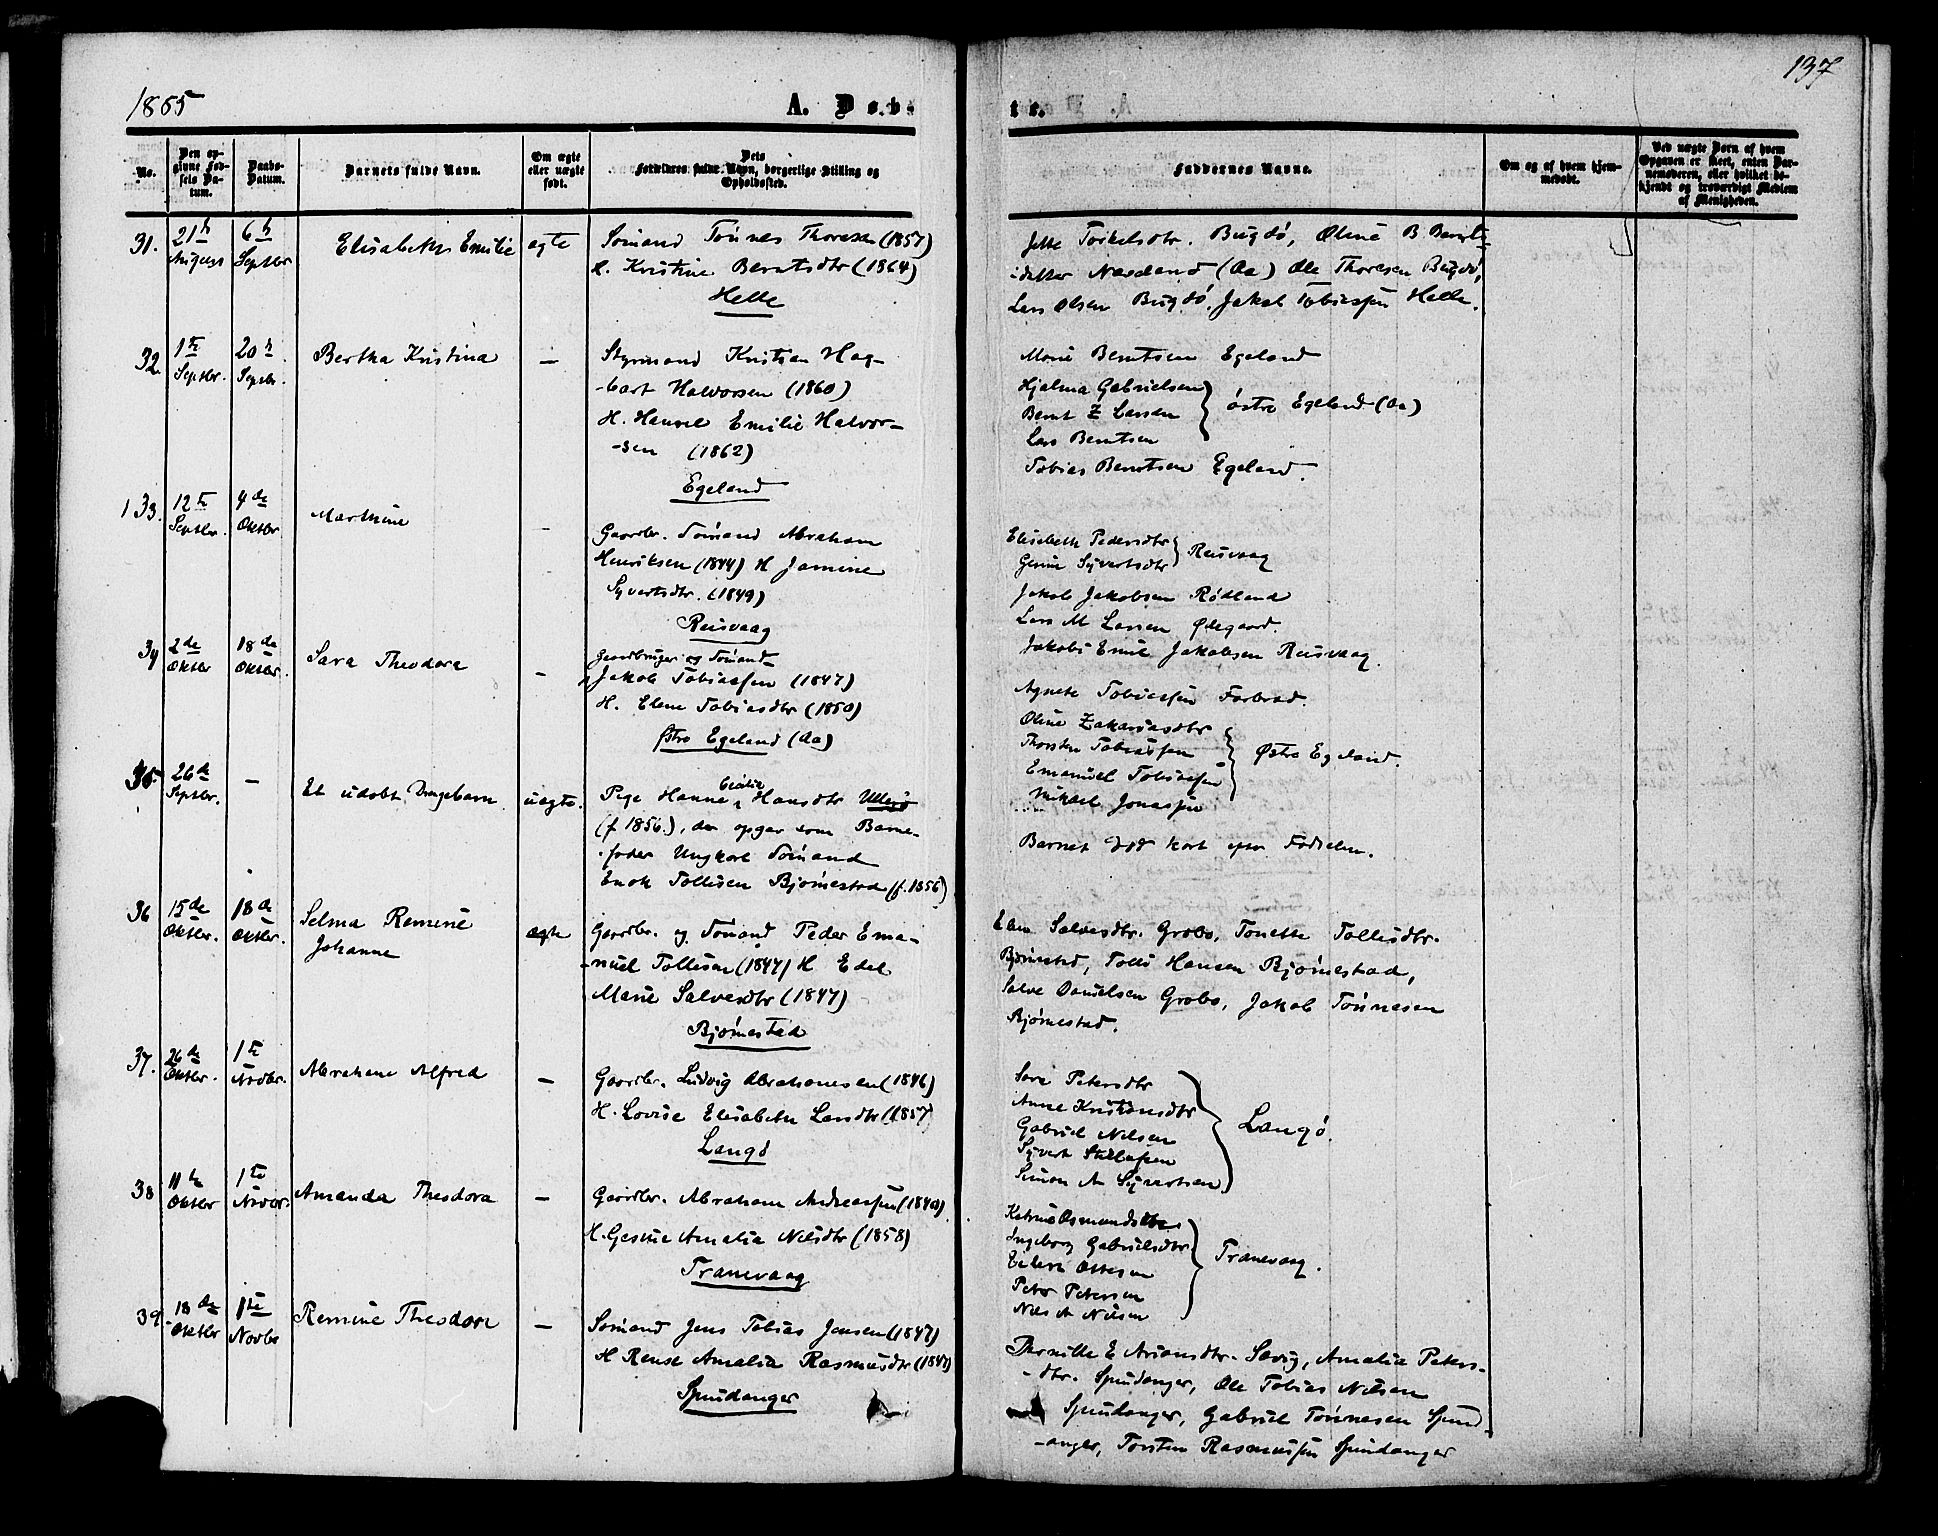 1885
A. Døbte.
137
No.
Den opgivne Fødsels Datum.
Daabs-Datum.
Barnets fulde Navn.
Om ægte eller uægte født.
Forældres fulde Navn, borgerlige Stilling og Opholdssted.
Faddernes Navne.
Om og af hvem hjemmedøbt.
Ved uægte Børn af hvem Opgaven er skeet, enten Barnemoderen, eller hvilket bekjendt og troværdigt Medlem af Menigheden.
31. 21 August 6 Septbr Elisabeth Emilie ægte Sømand Tønnes Thoresen (1857)
H. Kristine Berntsdtr (1864)
Helle
Jette Torkelsdtr. Bugdø, Oline B Bernts-
datter Nordland (Aa) Ole Thoresen Bugdø,
Lars Olsen Bugdø, Jakob Tobiassen Helle.
32 1 Septbr. 20 Septbr. Bertha Kristina — Styrmand Kristian Hag-
-bart Halvorsen (1860)
H. Hanne Emilie Halvor-
-sen (1862)
Egeland
Marie Berntsen Egeland
Hjalma Gabrielsen
Bernt Z Larsen
Lars Berntsen
østre Egeland (Aa)
Tobias Berntsen Egeland.
133. 12 Septbr. 4de Oktbr Marthine - Gaardbr. Sømand Abraham
Henriksen (1844) H Jamine
Syvertsdtr. (1849)
Reisvaag
Elisabeth Pedersdtr
Gesine Syvertsdtr
Reisvaag
Jakob Jakobsen Rødland
Lars M Larsen Ødegaard.
Jakobs Emil Jakobsen Reisvaag.
34 2de Oktbr 18de Oktbr. Sara Theodora - Gaardbruger og Sømand
Jakob Tobiassen (1847)
H. Elene Tobiasdtr (1850)
Østre Egeland (Aa)
Agnete Tobiassen Farbrød.
Oline Zakariasdtr
Thorsten Tobiassen
Emanuel Tobiassen
Mikael Jonassen
Østre Egeland.
35. 26de Septbr. — Et udøbt Drengebarn uægte. Pige Hanne Hansdtr Ullerø
(f. 1856.), der opgav som Barne-
-fader Ungkarl Sømand
Enok Tollisen Bjørnestad (f. 1856)
Barnet død kort efter Fødselen.
36 15de Oktbr. 18de Oktbr. Selma Remine
Johanne
ægte Gaardbr. og Sømand Peder Ema-
-nuel Tollisen (1847) H Edel
Marie Salvesdtr (1847)
Bjørnestad
Elen Salvesdtr. Grobo, Tonette Tollisdtr.
Bjørnestad, Tolli Hansen Bjørnestad,
Salve Danielsen Grobo, Jakob Tønnesen
Bjørnestad.
37. 26de Oktbr. 1te Novbr. Abraham Alfred — Gaardbr. Ludvig Abrahamsen (1846)
H. Lovise Elisabeth Larsdtr (1857)
Langø
Sara Petersdtr
Anne Kristensdtr
Gabriel Nilsen
Syvert Stillufsen
Simon A Syvertsen
Langø.
38 11te Oktbr 1te Novbr. Amanda Theodora — Gaardbr. Abraham Andreassen (1840)
H. Gesine Amalia Nilsdtr (1858)
Tranevaag
Katrine Osmundsdtr
Ingeborg Gabrielsdtr
Eilert Ottesen
Peter Petersen
Nils A Nilsen
Tranevaag.
39. 18de Oktbr 1te Novbr Remine Theodora — Sømand Jens Tobias Jensen (1847)
H Rense Amalia Rasmusdtr (1847)
Spindanger
Pernille E Ariansdtr. Sævig, Amalia Peters-
-dtr. Spindanger, Ole Tobias Nilsen
Spindanger, Gabriel Tønnesen Spind-
-anger, Torsten Rasmussen Spindanger